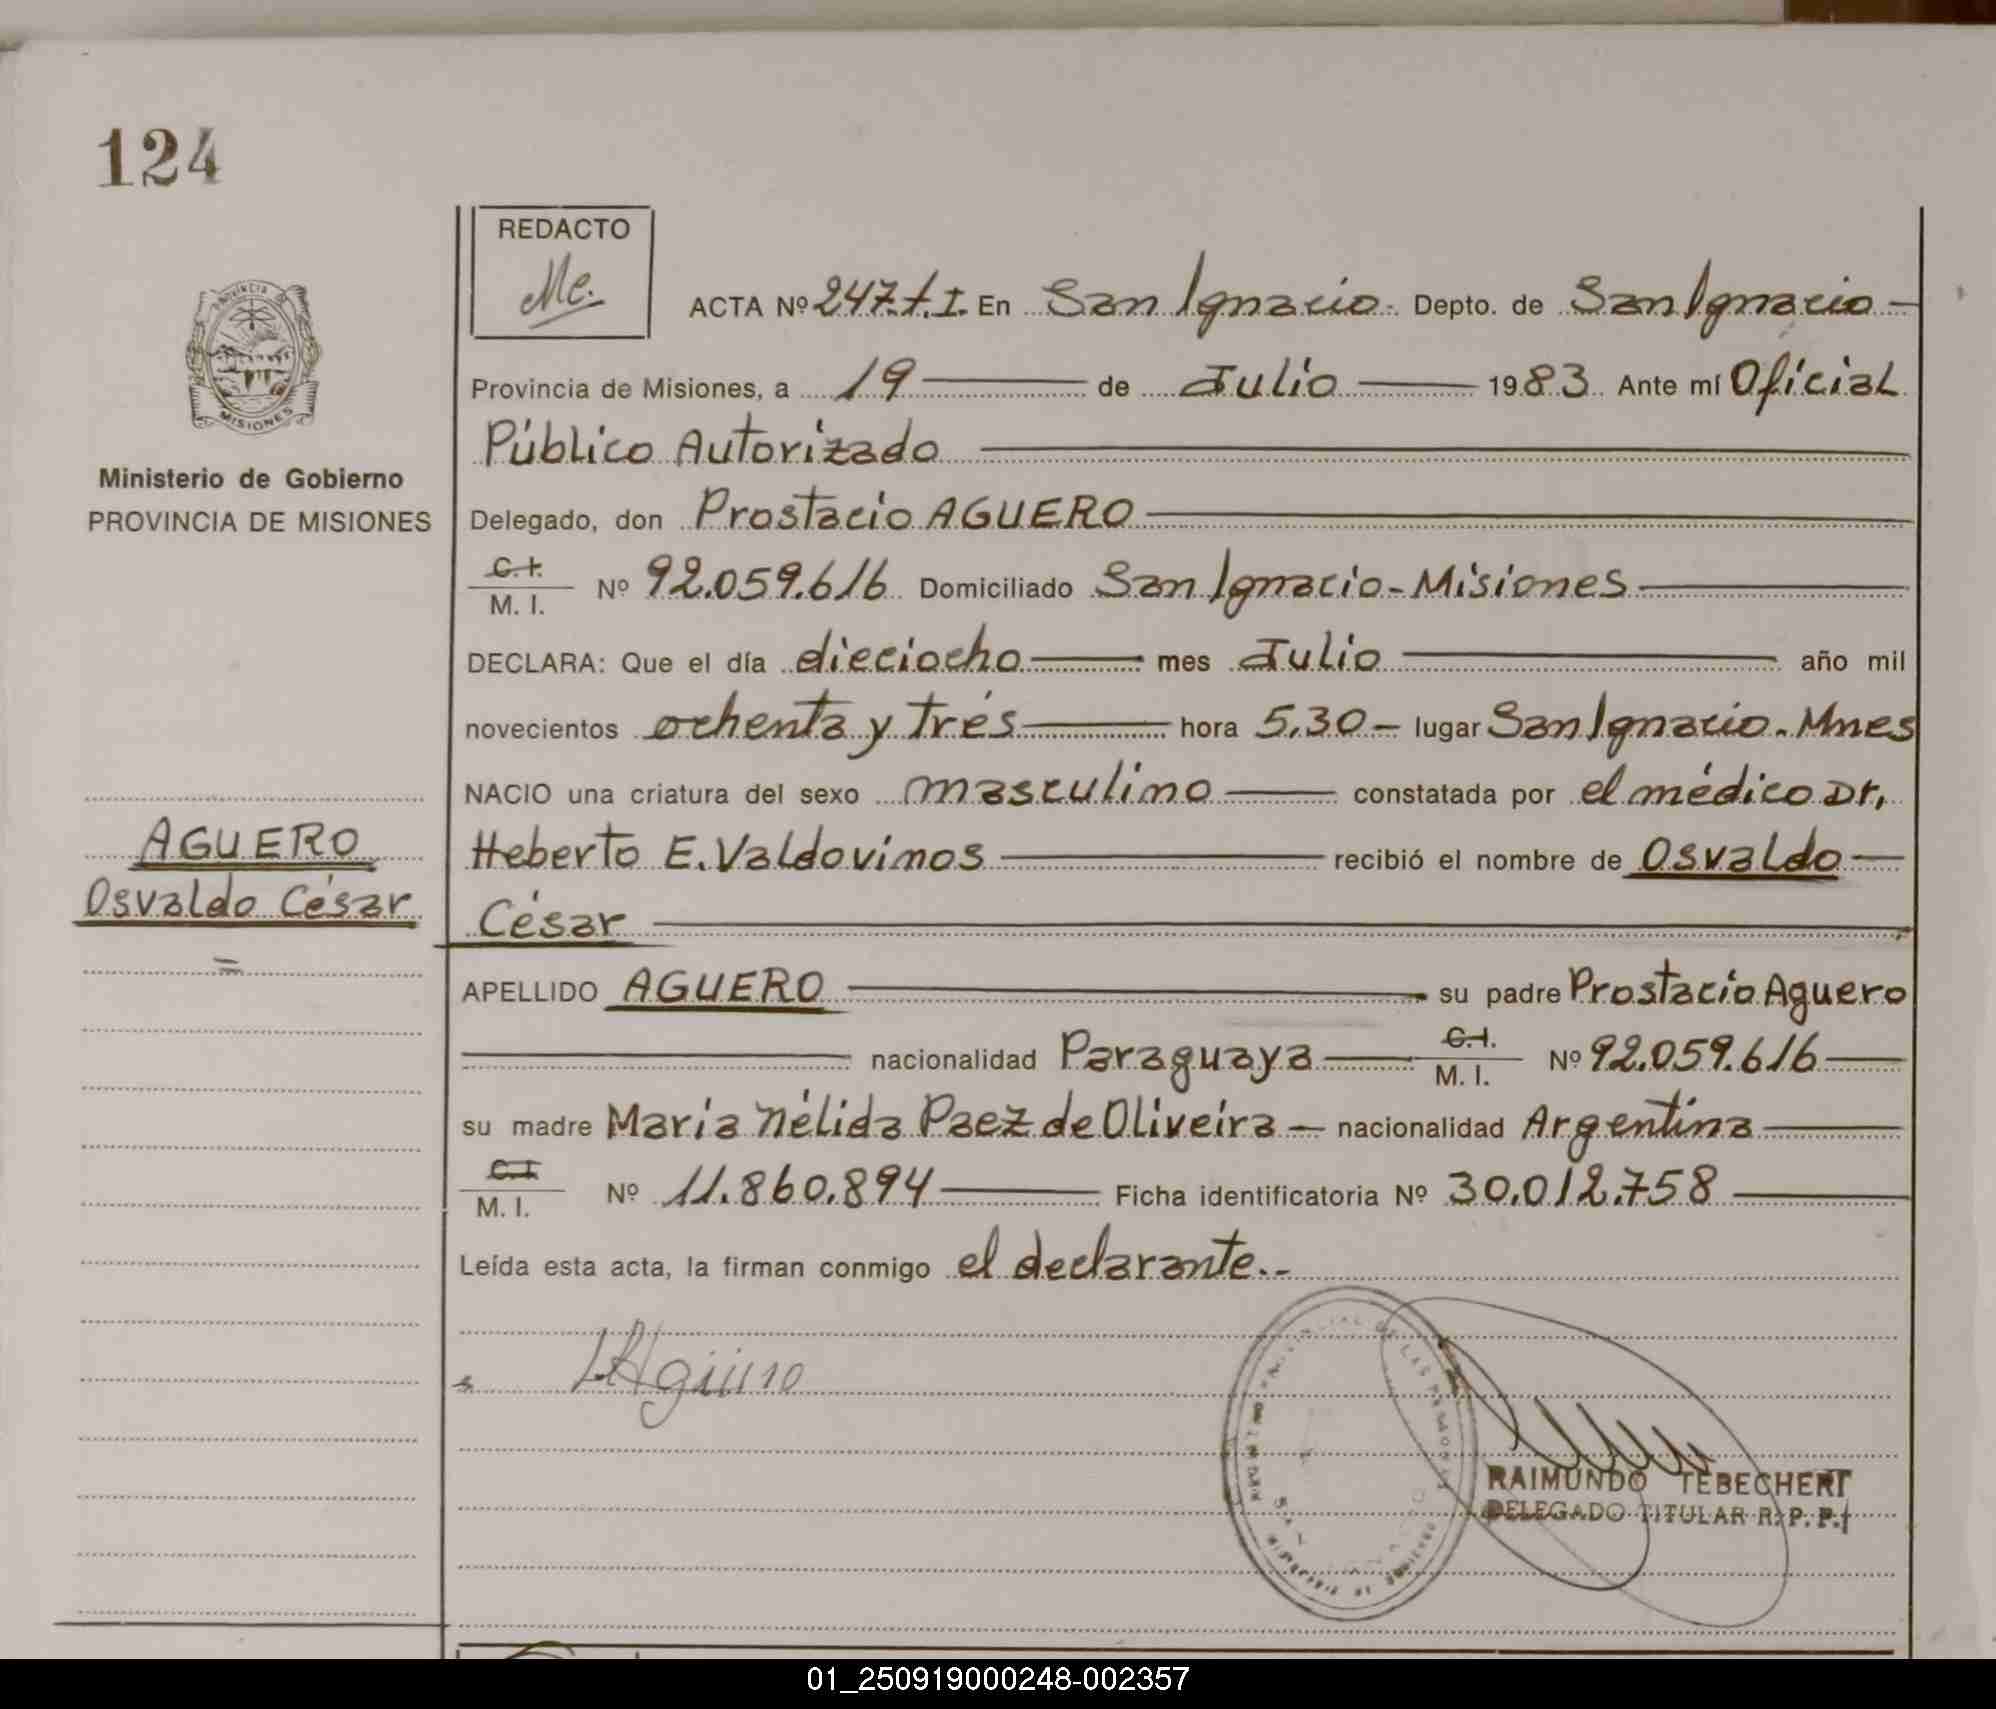 124
REDACTO
Me.
ACTA Nº 247.t.I. En San Ignacio. Depto. de San Ignacio
Provincia de Misiones, a 19 de Julio 1983. Ante mí Oficial
Público Autorizado
Ministerio de Gobierno
PROVINCIA DE MISIONES
Delegado, don Prostacio AGUERO
C.I. M. I. Nº 92.059.616 Domiciliado San Ignacio-Misiones
DECLARA: Que el día dieciocho mes Julio año mil
novecientos ochenta y trés hora 5,30 lugar San Ignacio. Mnes
NACIO una criatura del sexo masculino constatada por el médico Dr,
Heberto E. Valdovinos recibió el nombre de Osvaldo
César
AGUERO
Osvaldo César
APELLIDO AGUERO su padre Prostacio Aguero
nacionalidad Paraguaya C.I. M. I. Nº 92.059.616
su madre María Nélida Paez de Oliveira nacionalidad Argentina
C.I. M. I. Nº 11.860.894 Ficha identificatoria Nº 30.012.758
Leída esta acta, la firman conmigo el declarante.-
RAIMUNDO TEBECHERI
DELEGADO TITULAR R. P. P.
01_250919000248-002357